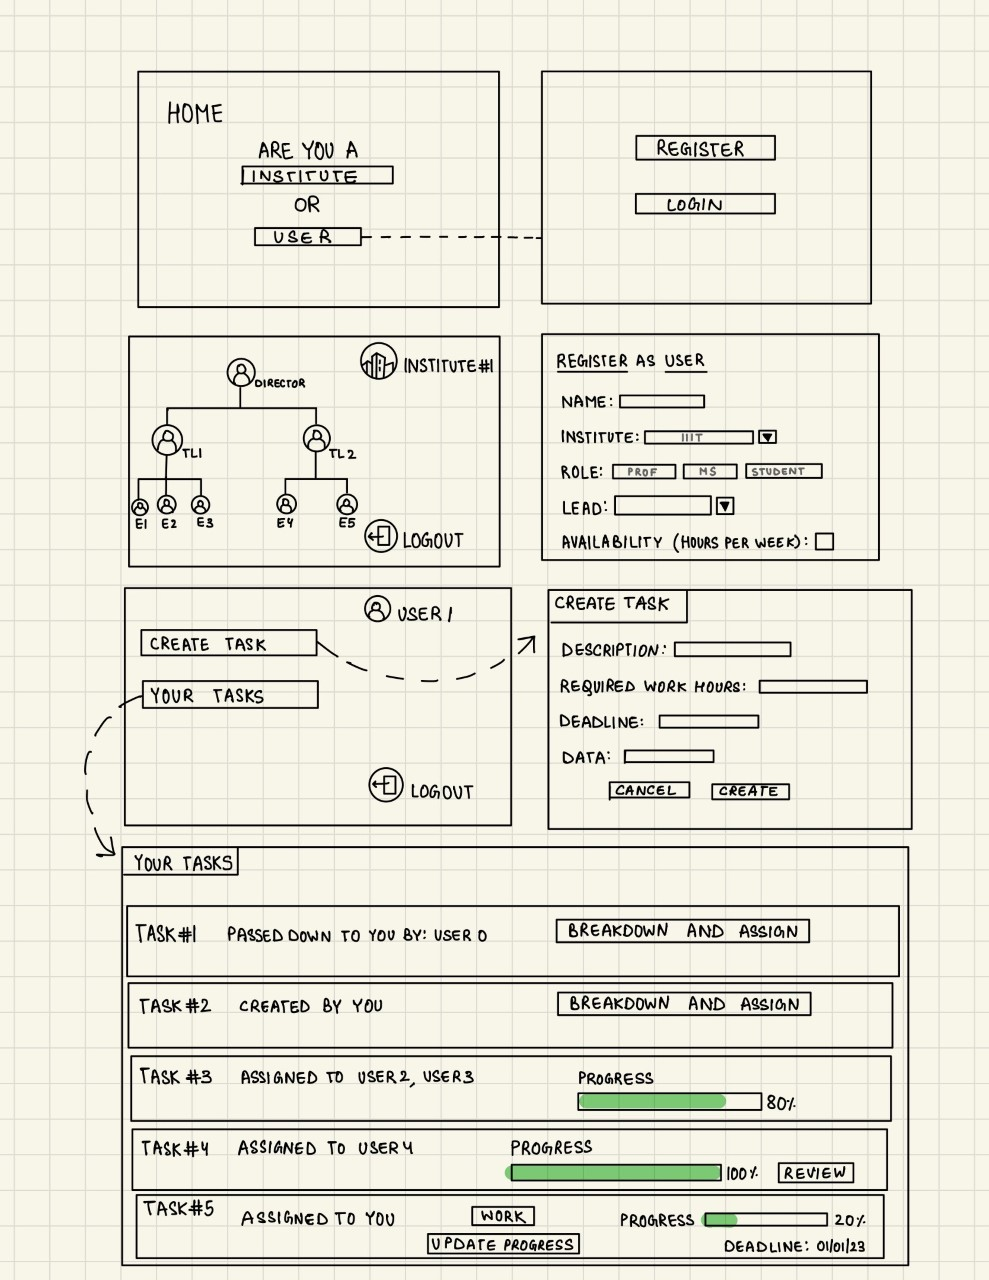 HOME
ARE YOU A
INSTITUTE
OR
USER
REGISTER
LOGIN
INSTITUTE#1
DIRECTOR
TL1
TL2
E1 E2 E3 E4 E5
LOGOUT
REGISTER AS USER
NAME:
INSTITUTE: IIIT
ROLE: PROF MS STUDENT
LEAD:
AVAILABILITY (HOURS PER WEEK):
USER 1
CREATE TASK
YOUR TASKS
LOGOUT
CREATE TASK
DESCRIPTION:
REQUIRED WORK HOURS:
DEADLINE:
DATA:
CANCEL CREATE
YOUR TASKS
TASK#1 PASSED DOWN TO YOU BY: USER 0 BREAKDOWN AND ASSIGN
TASK#2 CREATED BY YOU BREAKDOWN AND ASSIGN
TASK #3 ASSIGNED TO USER2, USER3 PROGRESS
80%
TASK#4 ASSIGNED TO USER4 PROGRESS
100% REVIEW
TASK#5
ASSIGNED TO YOU WORK PROGRESS 20%
UPDATE PROGRESS DEADLINE: 01/01/23